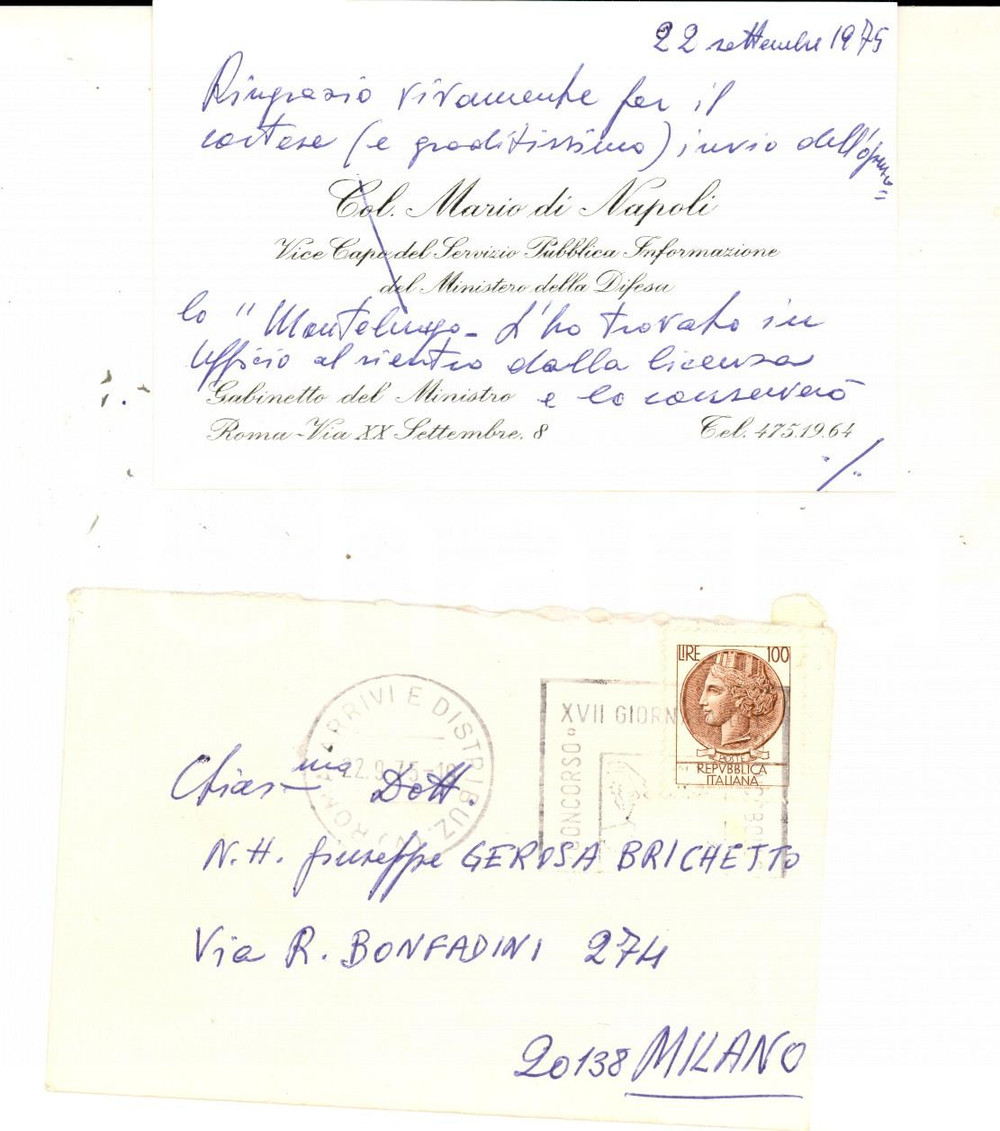 22 settembre 1975
Ringrazio vivamente per il
cortese (e graditissimo) invio dell'opusco=
Col. Mario di Napoli
Vice Capo del Servizio Pubblica Informazione
del Ministero della Difesa
lo "Montelungo_ L'ho trovato in
Ufficio al rientro dalla licenza
Gabinetto del Ministro e lo conserverò
Roma - Via XX Settembre, 8 Tel. 475.19.64
./.
LIRE 100
POSTE
REPVBBLICA
ITALIANA
ROMA ARRIVI E DISTRIBUZ.
22.9.75-18
XVII GIORN
CONCORSO
Chiar.mo Dott.
N.H. Giuseppe GEROSA BRICHETTO
Via R. BONFADINI 274
20138 MILANO